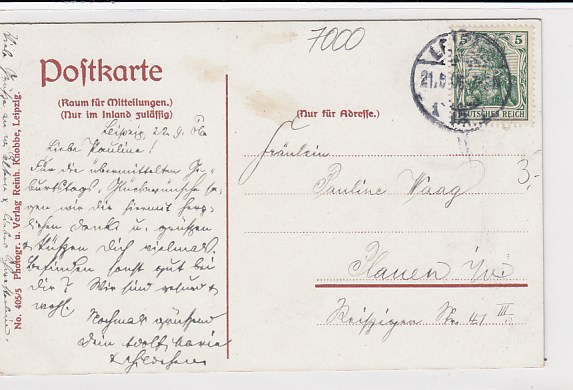 7000
Postkarte
(Raum für Mitteilungen.)
(Nur im Inland zulässig)
(Nur für Adresse.)
5
DEUTSCHES REICH
Leipzig, 22. 9. 06
Liebe Pauline!
Für die übermittelten Ge-
burtstags-Glückwünsche sa-
gen wir dir hiermit herz-
lichen Dank u. grüssen
& küssen Dich vielmals
Befinden sonst gut bei
dir? Wir sind gesund &
wohl.
Nochmals grüssend
Dein Adolf, Marie
Fräulein
Pauline Waag
Plauen i/V
Leipziger Str. 41 III
3,-
No. 405/5 Photogr. u. Verlag Reinh. Knobbe, Leipzig.